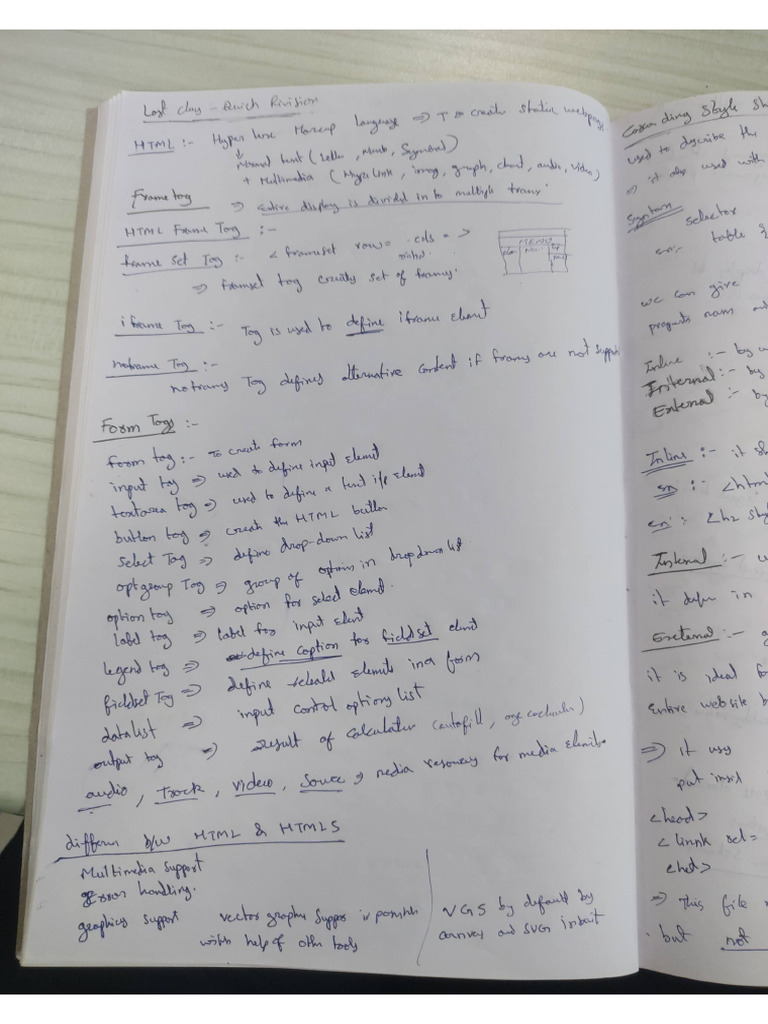 Last day - Quick Rivision
HTML :- Hyper text Markup Language => To create static webpage
Normal text (Letter, Numb, Symbol)
+ Multimedia (Hyperlink, imag, graph, chart, audio, video,)
Frame tag => Entire display is divided in to multiple frams.
HTML Frame Tag :-
frame set Tag :- < frameset row = cols = >
=> framset tag creates set of frames.
MENU
iframe Tag :- Tag is used to define iframe element
noframe Tag :-
noframes Tag defines alternative content if frames are not support
Form Tags :-
form tag :- To create form
input tag => used to define input element
textarea tag => used to define a text i/p element
button tag => create the HTML button
select Tag => define drop-down list
optgroup Tag => group of options in drop down list
option tag => option for select element.
label tag => label for input element
legend tag => define caption for fieldset element
fieldset Tag => define related elements in a form
datalist => input control options list
output tag => result of calculator (autofill, age calculator)
audio, Track, Video, Source => media resources for media elements
differen b/w HTML & HTML5
Multimedia support
Error handling.
graphics support vector graphs suppor is possible
with help of other tools
VGS by default by
canvas and SVG inbuit
Casending Style Sh
used to describe the
=> it also used with
Syntax selector
en:- table {
we can give
Inline :- by
Internal :- by
External :- by
Inline :- it
en :- <html
en :- <h2 sty
Internal :-
it defin in
External :-
it is ideal fo
Entire website b
=> it use
put insid
<head>
< linnk rel =
<hed>
=> This file
but not